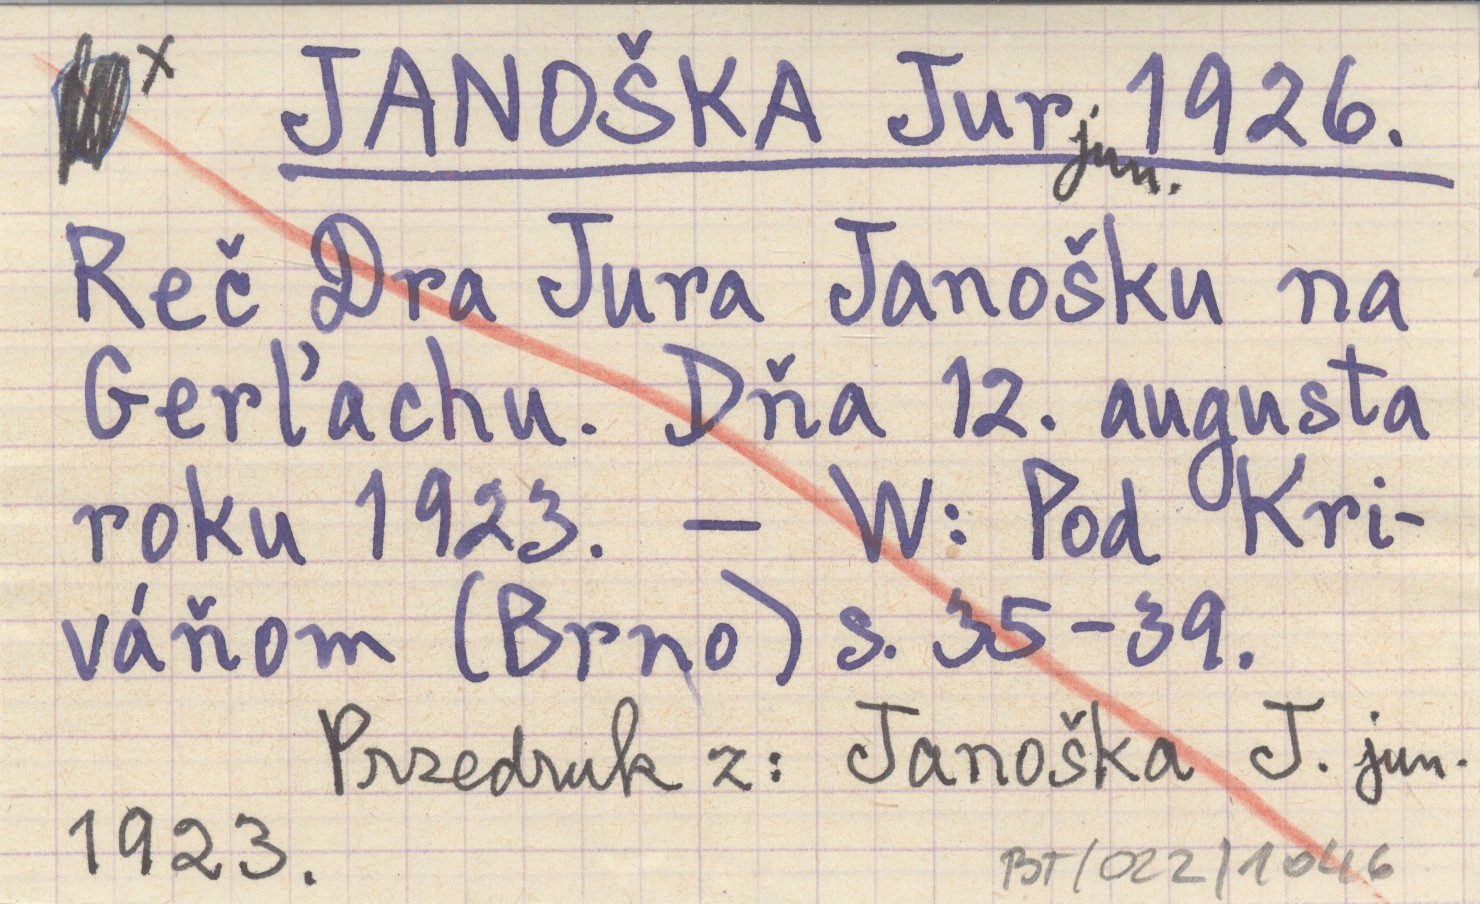 x JANOŠKA Jur jun. 1926.
Reč Dra Jura Janošku na
Gerľachu. Dňa 12. augusta
roku 1923. – W: Pod Kri-
váňom (Brno) s. 35-39.
Przedruk z: Janoška J. jun.
1923.
BT/022/1046